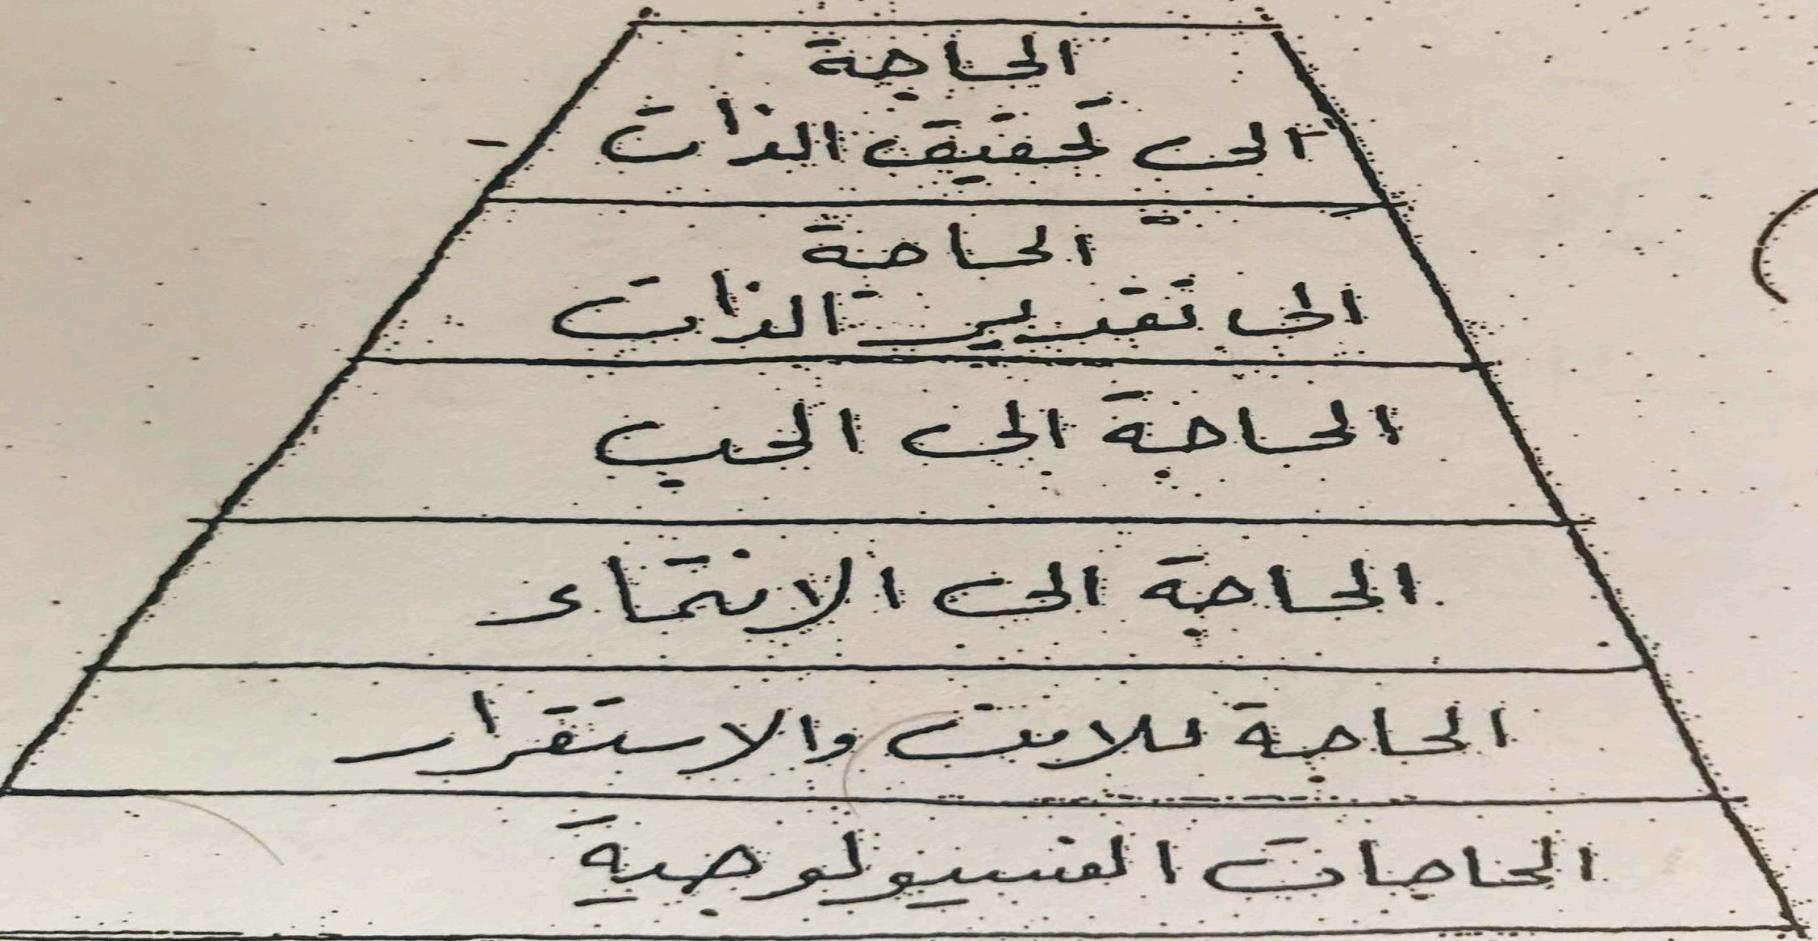 الحاجة
الى تحقيق الذات
الحاجة
الى تقدير الذات
الحاجة الى الحب
الحاجة الى الانتماء
الحاجة للامن والاستقرار
الحاجات الفسيولوجية